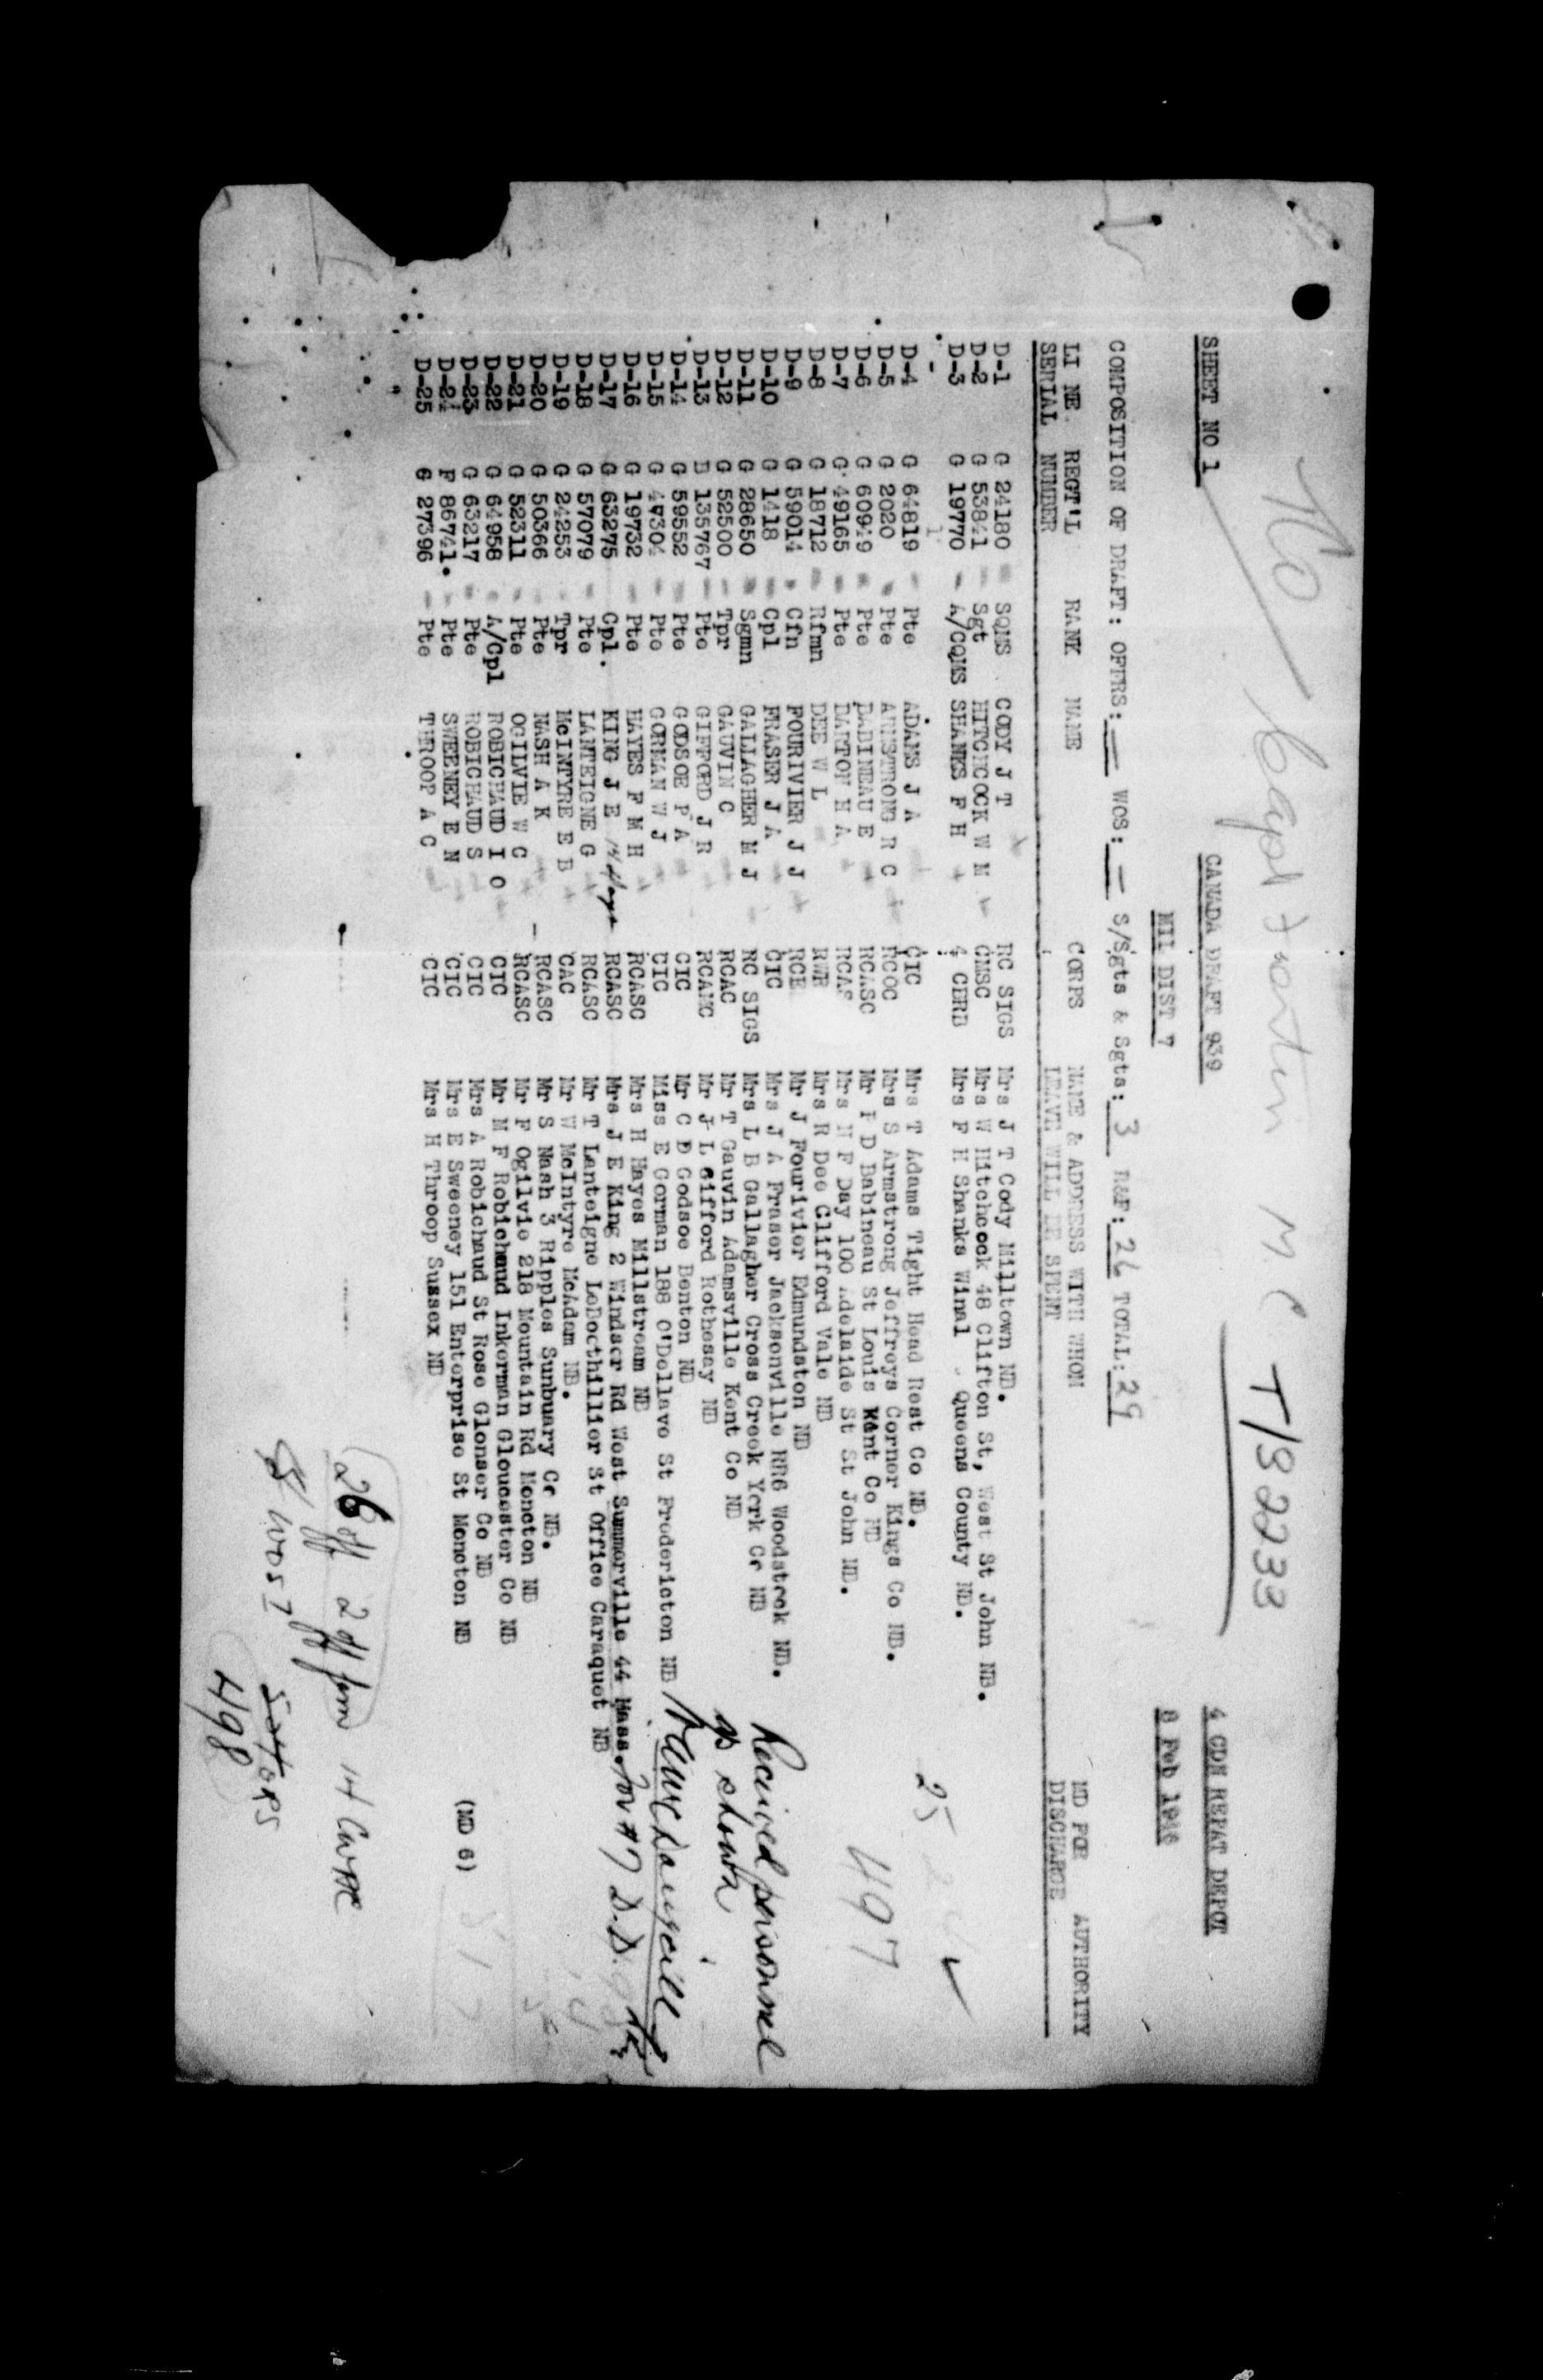 T/82233
SHEET NO 1 CANADA DRAFT 939 4 CDN REPAT DEPOT
MIL DIST 7 8 Feb
COMPOSITION OF DRAFT: OFFRS: — WOS: — S/Sgts & Sgts: 3 R&F: 26 TOTAL: 29
LI NE REGT'L RANK NAME CORPS NAME & ADDRESS WITH WHOM MD FOR AUTHORITY
SERIAL NUMBER LEAVE WILL BE SPENT DISCHARGE
D-1 G 24180 SQMS CODY J T RC SIGS Mrs J T Cody Milltown NB.
D-2 G 53841 Sgt HITCHCOCK W N CMSC Mrs W Hitchcock 48 Clifton St, West St John NB.
D-3 G 19770 A/CQMS SHANKS F H 4 CBRD Mrs F H Shanks Queens County NB.
D-4 G 64819 Pte ADAMS J A CIC Mrs T Adams Tight Head Rest Co NB.
D-5 G 2020 Pte ARMSTRONG R C RCOC Mrs S Armstrong Jeffreys Corner Kings Co NB.
D-6 G 60949 Pte BABINEAU E RCASC Mr P D Babineau St Louis Kent Co NB
D-7 G 49165 Pte BARTON H A RCAS Mrs N F Day 100 Adelaide St St John NB.
D-8 G 18712 Rfmn DEE W L RWR Mrs R Dee Clifford Vale NB
D-9 G 59014 Cfn FOURIVIER J J RCE Mr J Fourivier Edmundston NB
D-10 G 1418 Cpl FRASER J A CIC Mrs J A Fraser Jacksonville RR6 Woodstock NB.
D-11 G 28650 Sgmn GALLAGHER M J RC SIGS Mrs L B Gallagher Cross Creek York Co NB
D-12 G 52500 Tpr GAUVIN C RCAC Mr T Gauvin Adamsville Kent Co NB
D-13 B 135767 Pte GIFFORD J R RCAMC Mr J L Gifford Rothesay NB
D-14 G 59552 Pte GODSOE P A CIC Mr C D Godsoe Benton NB
D-15 G 47304 Pte GORMAN W J CIC Miss E Gorman 188 O'Dellave St Fredericton NB
D-16 G 19732 Pte HAYES F M H RCASC Mrs H Hayes Millstream NB
D-17 G 63275 Cpl. KING J E RCASC Mrs J E King 2 Windsor Rd West Summorville 44 Mass. For #7 D.D.
D-18 G 57079 Pte LANTEIGNE G RCASC Mr T Lanteigne LeBocthillier St Office Caraquet NB
D-19 G 24253 Tpr McINTYRE E B CAC Mr W McIntyre McAdam NB.
D-20 G 50366 Pte NASH A K RCASC Mr S Nash 3 Ripples Sunbuary Co NB.
D-21 G 52311 Pte OGILVIE W G RCASC Mr F Ogilvie 218 Mountain Rd Moncton NB
D-22 G 64958 A/Cpl ROBICHAUD I O CIC Mr M F Robichaud Inkerman Gloucester Co NB
D-23 G 63217 Pte ROBICHAUD S CIC Mrs A Robichaud St Rose Glonser Co NB
D-24 F 86741. Pte SWEENEY E N CIC Mrs E Sweeney 151 Enterprise St Moncton NB (MD 6)
D-25 G 27396 Pte THROOP A C CIC Mrs H Throop Sussex NB
25
497
Received personnel
as shown
26
498